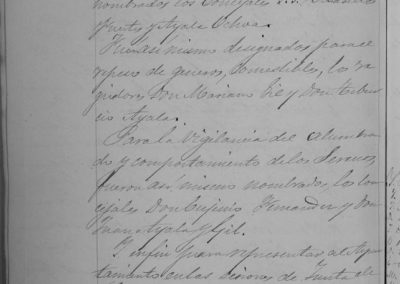 nombrados los Concejales
Fuertes y Ayala Ochoa.
mismo designados para el
repeso de generos, comestibles, los re
gidores Don Mariano Gil y Don Tibur
cio Ayala.
Para la Vigilancia del alumbra
do y comportamiento de los Serenos,
fueron asi mismo nombrados, los Con
cejales Don Eugenio Fernandez y Don
Juan Ayala y Gil.
Y en fin para representar al Ayun
tamiento en las sesiones de Junta de